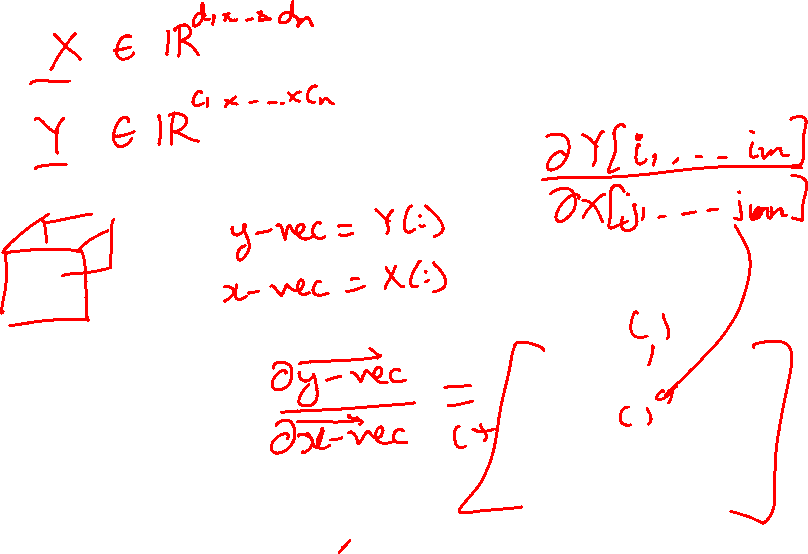 X ∈ ℝ^{d₁×--×dₙ}
Y ∈ ℝ^{c₁×--..×cₙ}
∂Y[i₁,...im]
∂X[j₁,...jm]
y-vec = Y(:)
x-vec = X(:)
∂y-vec
∂x-vec
= [ ]